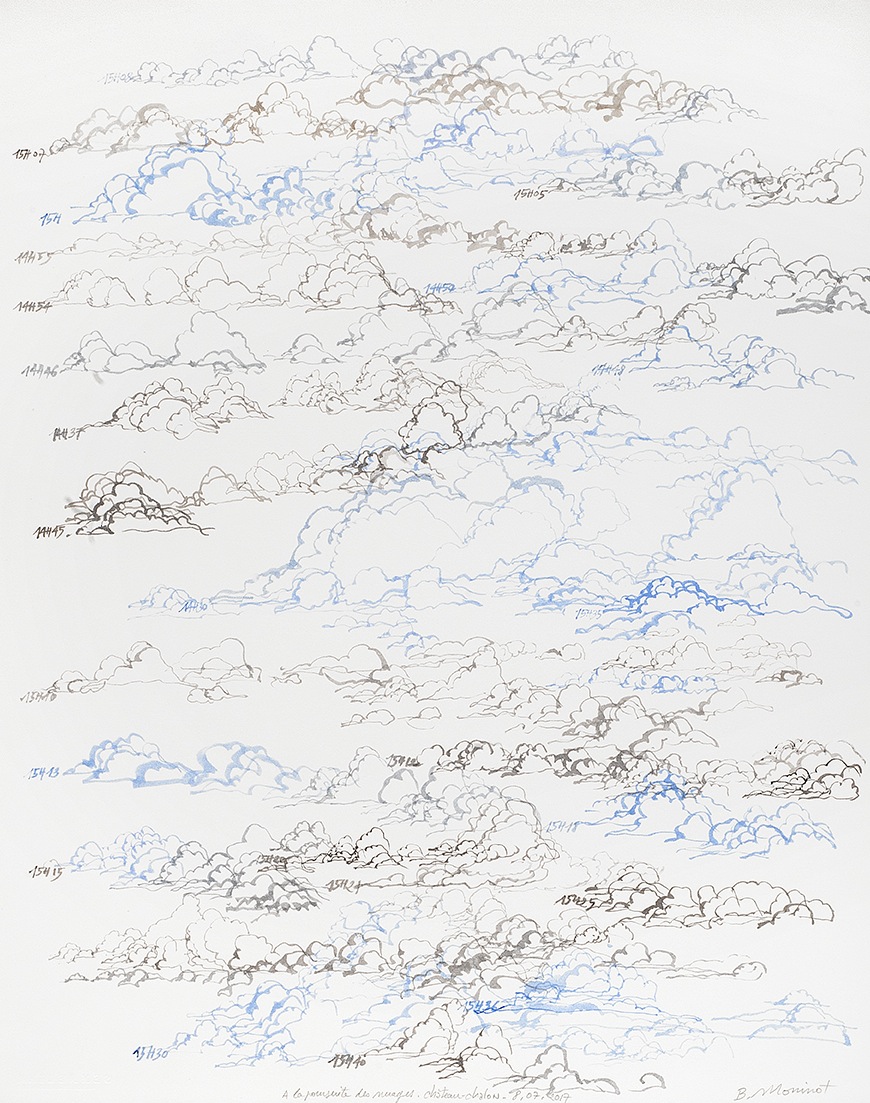 15H08
15H07
15H
15H05
14H55
14H54
14H50
14H46
15H48
14H37
14H45.
14H30
15H35
13H10
15H13
15H10
15H18
15H15
15H20
15H21
15H25
15H36
15H30
15H40
A la poursuite des nuages. château-chalon - 8.07.2017
B. Moninot